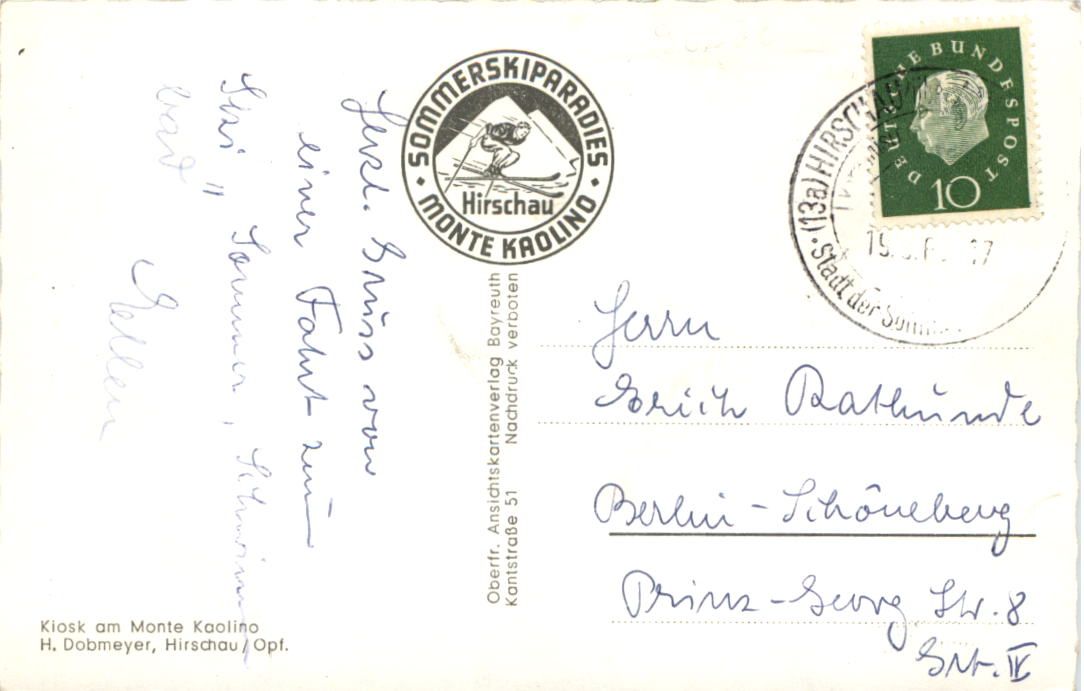 Herzl. Gruss von
einer Fahrt zum
Ski " Sommer, Schwimm
bad
Ellen
SOMMERSKIPARADIES
Hirschau
MONTE KAOLINO
Oberfr. Ansichtskartenverlag Bayreuth
Kantstraße 51 Nachdruck verboten
DEUTSCHE BUNDESPOST
10
(13a) HIRSCHAU
Stadt der
Herrn
Erich Rathunde
Berlin - Schöneberg
Prinz-Georg Str. 8
Grt. IV
Kiosk am Monte Kaolino
H. Dobmeyer, Hirschau/Opf.